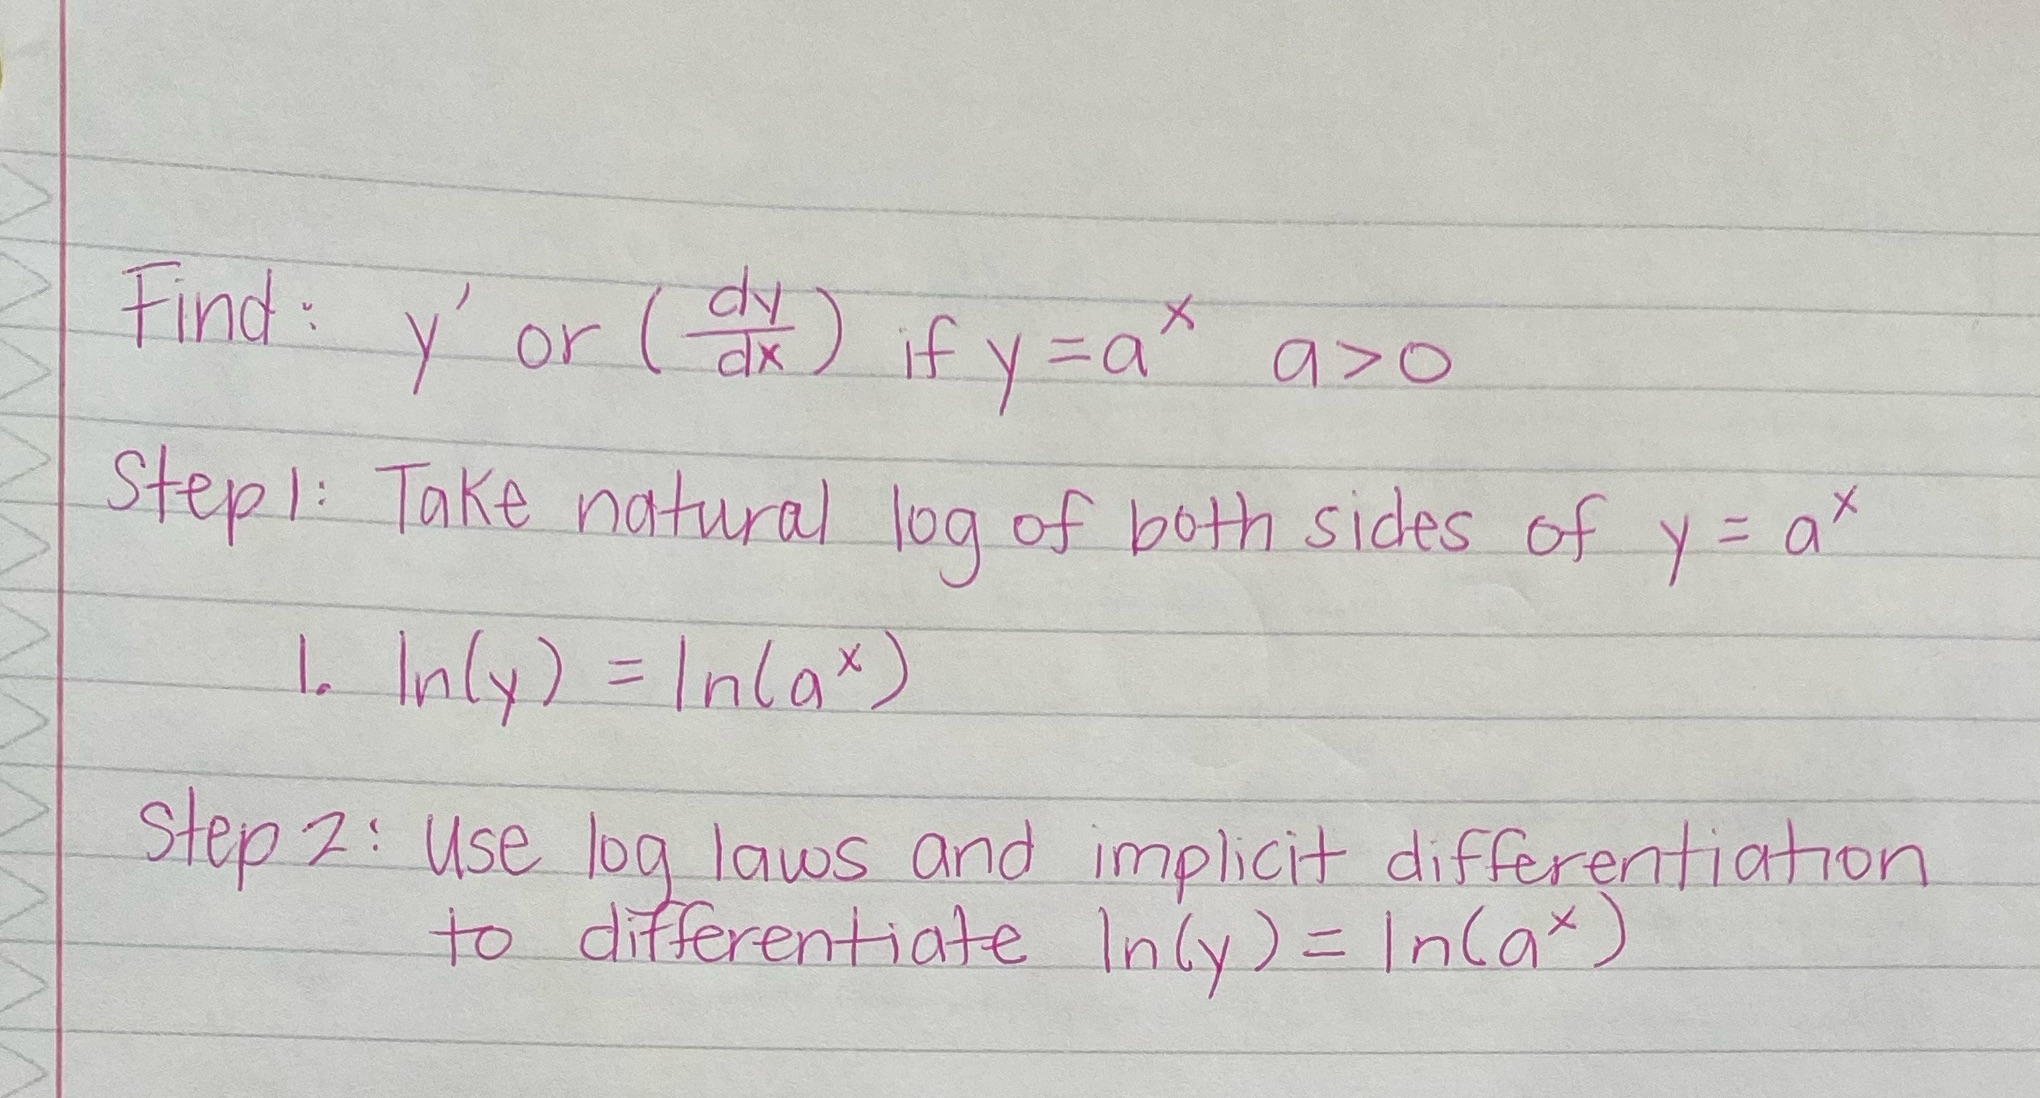 Find: y' or (dy/dx) if y=a^x a>0
Step1: Take natural log of both sides of y = a^x
1. ln(y) = ln(a^x)
Step 2: Use log laws and implicit differentiation
to differentiate ln(y) = ln(a^x)